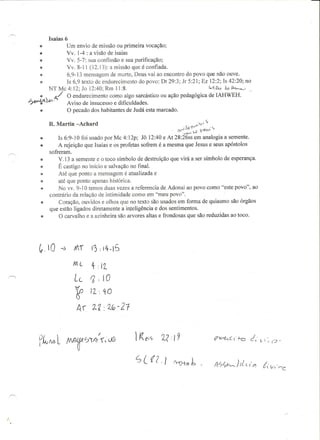 Isaías 6
• Um envio de missão ou primeira vocação;
• Vv. 1-4 : a visão de isaias
• Vv. 5-7: sua confissão e sua purificação;
• Vv. 8-11 (12,13): a missão que é confiada.
• 6,9-13 mensagem de morte, Deus vai ao encontro do povo que não ouve.
• Is 6,9 texto de endurecimento do povo; Dt 29:3; Jr 5:21; Ez 12:2; Is 42:20; no
NT Mc 4:12; Jo 12:40; Rm 11:8.
• O endurecimento como algo sarcástico ou ação pedagógica de IAHWEH.
• Aviso de insucesso e dificuldades.
• O pecado dos habitantes de Judá esta marcado.
B. Martin –Achard
• Is 6:9-10 foi usado por Mc 4:12p; Jô 12:40 e At 28:26ss em analogia a semente.
• A rejeição que Isaias e os profetas sofrem é a mesma que Jesus e seus apóstolos
sofreram.
• V.13 a semente e o toco símbolo de destruição que virá a ser símbolo de esperança.
• É castigo no inicio e salvação no final.
• Até que ponto a mensagem é atualizada e
• até que ponto apenas histórica.
• No vv. 9-10 temos duas vezes a referencia de Adonai ao povo como "este povo", ao
contrário da relação de intimidade como em "meu povo".
• Coração, ouvidos e olhos que no texto são usados em forma de quiasmo são órgãos
que estão ligados diretamente a inteligência e dos sentimentos.
• O carvalho e a azinheira são arvores altas e frondosas que são reduzidas ao toco.
6,10 → MT 13,14-15
Mc 4:12
Lc 8:10
Jo 12:40
AT 28:26-27
Plural majestático
1 Res 22:19
Sl 82:1